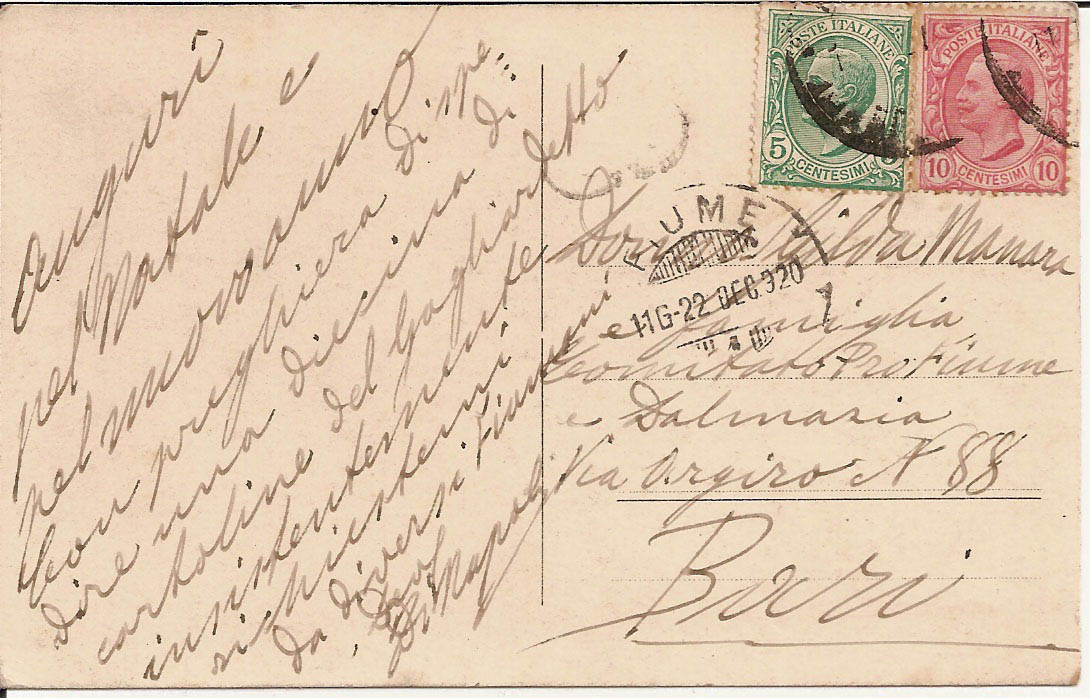 Auguri
pel Natale e
pel nuovo anno
Con preghiera di spe=
dire una diecina di
cartoline del gagliardetto
insistentemente
richiestemi
da diversi Fiumani
Prof
Di Napoli
POSTE ITALIANE
5 CENTESIMI
POSTE ITALIANE
10 CENTESIMI 10
FIUME
11G-22 DEC 920
1
Donna Gilda Manara
e famiglia
Comitato Pro Fiume
e Dalmazia
Via Argiro N 88
Bari